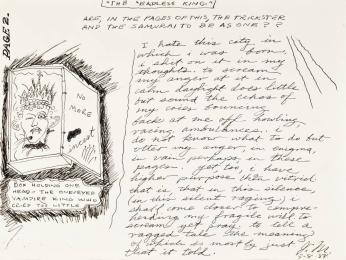 PAGE 2.
"THE "BADLESS KING."
ARE, IN THE PAGES OF THIS, THE TRICKSTER
AND THE SAMURAI TO BE AS ONE??
NO
MORE
BOX HOLDING ONE
HEAD - THE ONE-EYED
VAMPIRE KING WHO
CRIED TOO LITTLE
I hate this city in
which i was born,
i shit on it in my
thoughts. to scream
my anger at it in
calm daylight does little
but sound the echos of
my voice bouncing
back at me off howling
racing ambulances. i
do not know what to do but
utter my anger, in enigma,
in vain perhaps in these
pages. yet too, i have
higher purpose than vitriol
that is that in this silence
(in this silent raging) i
shall come closer to compre-
hending my fragile will to
scream yet pray. to tell a
ragged tale (the meaning)
of which is most by just
that it told.
5-8-88